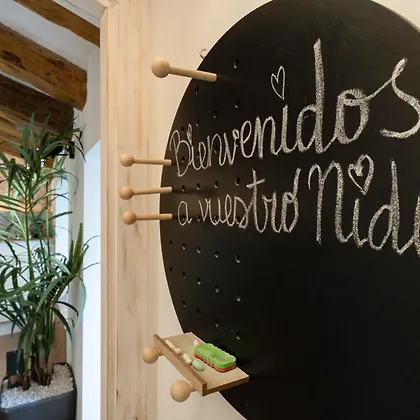 Bienvenidos
a vuestro Nido